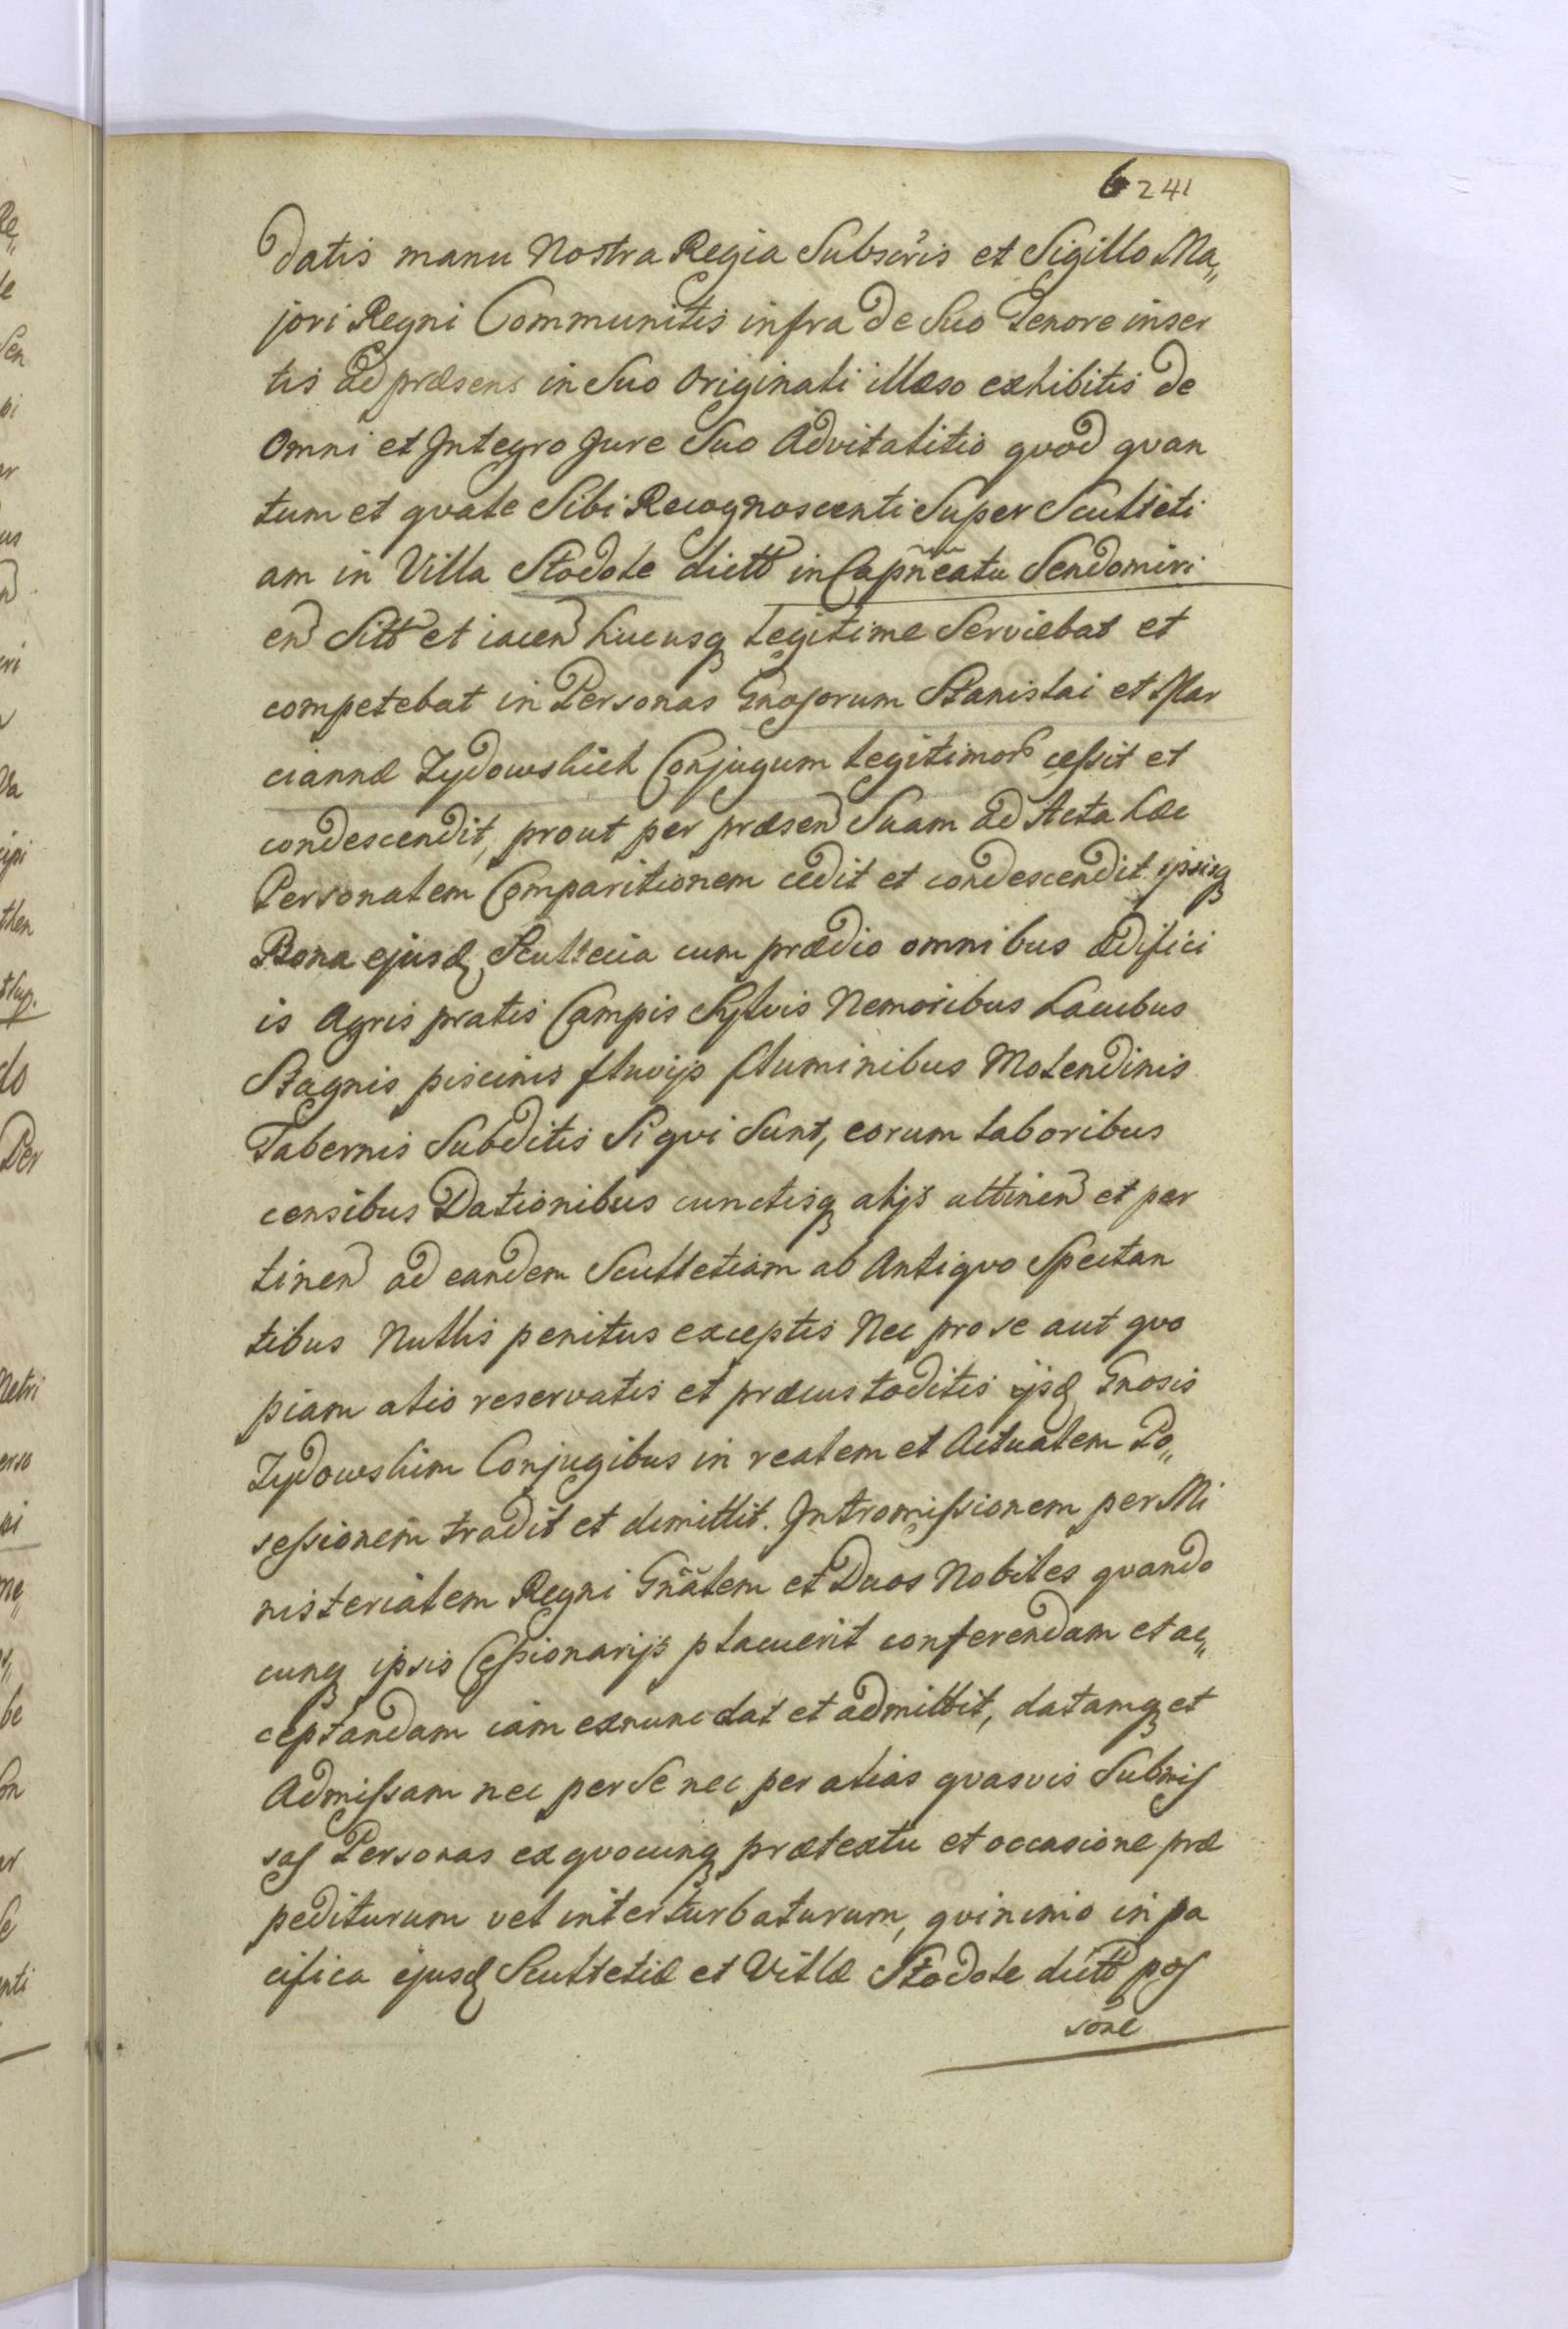 6 241
datis manu Nostra Regia Subscris et Sigillo Ma„
jori Regni Communitis infra de Suo Tenore inser
tis ad præsens in Suo Originali illæso exhibitis de
Omni et Integro Jure Suo Advitalitio qvod qvan
tum et qvale Sibi Recognoscenti Super Sculteti
am in Villa Stodole dictt in Capñeatu Sendomiri
en Sitt et iacen hucusq Legitime Serviebat et
competebat in Personas Gnosorum Stanislai et Mar
ciannæ Zydowskich Conjugum Legitimor cessit et
condescendit, prout per præsen Suam ad Acta hæc
Personalem Comparitionem cedit et condescendit ipsisq
Bona ejusd Scultecia cum prædio omnibus ædifici
is Agris pratis Campis Sylvis Nemoribus Lacubus
Stagnis piscinis fluvijs fluminibus Molendinis
Tabernis Subditis Si qvi Sunt, eorum laboribus
censibus Dationibus cunctisq alijs attinen et per
tinen ad eandem Scultetiam ab Antiqvo Spectan
tibus Nullis penitus exceptis Nec pro se aut qvo
piam alio reservatis et præcustoditis ijsd Gnosis
Zydowskim Conjugibus in realem et Actualem Po„
sessionem tradit et dimittit. Intromissionem per Mi
nisterialem Regni Gñalem et Duos Nobiles qvando
cunq ipsis Cessionarijs placuerit conferendam et ac„
ceptandam iam exnunc dat et admittit, datamq et
Admissam nec per Se nec per alias qvasvis Submis
sas Personas ex qvocunq prætextu et occasione præ
pediturum vel interturbaturum, qvinimo in pa
cifica ejusd Scultetiæ et Villæ Stodole dictt pos
sone